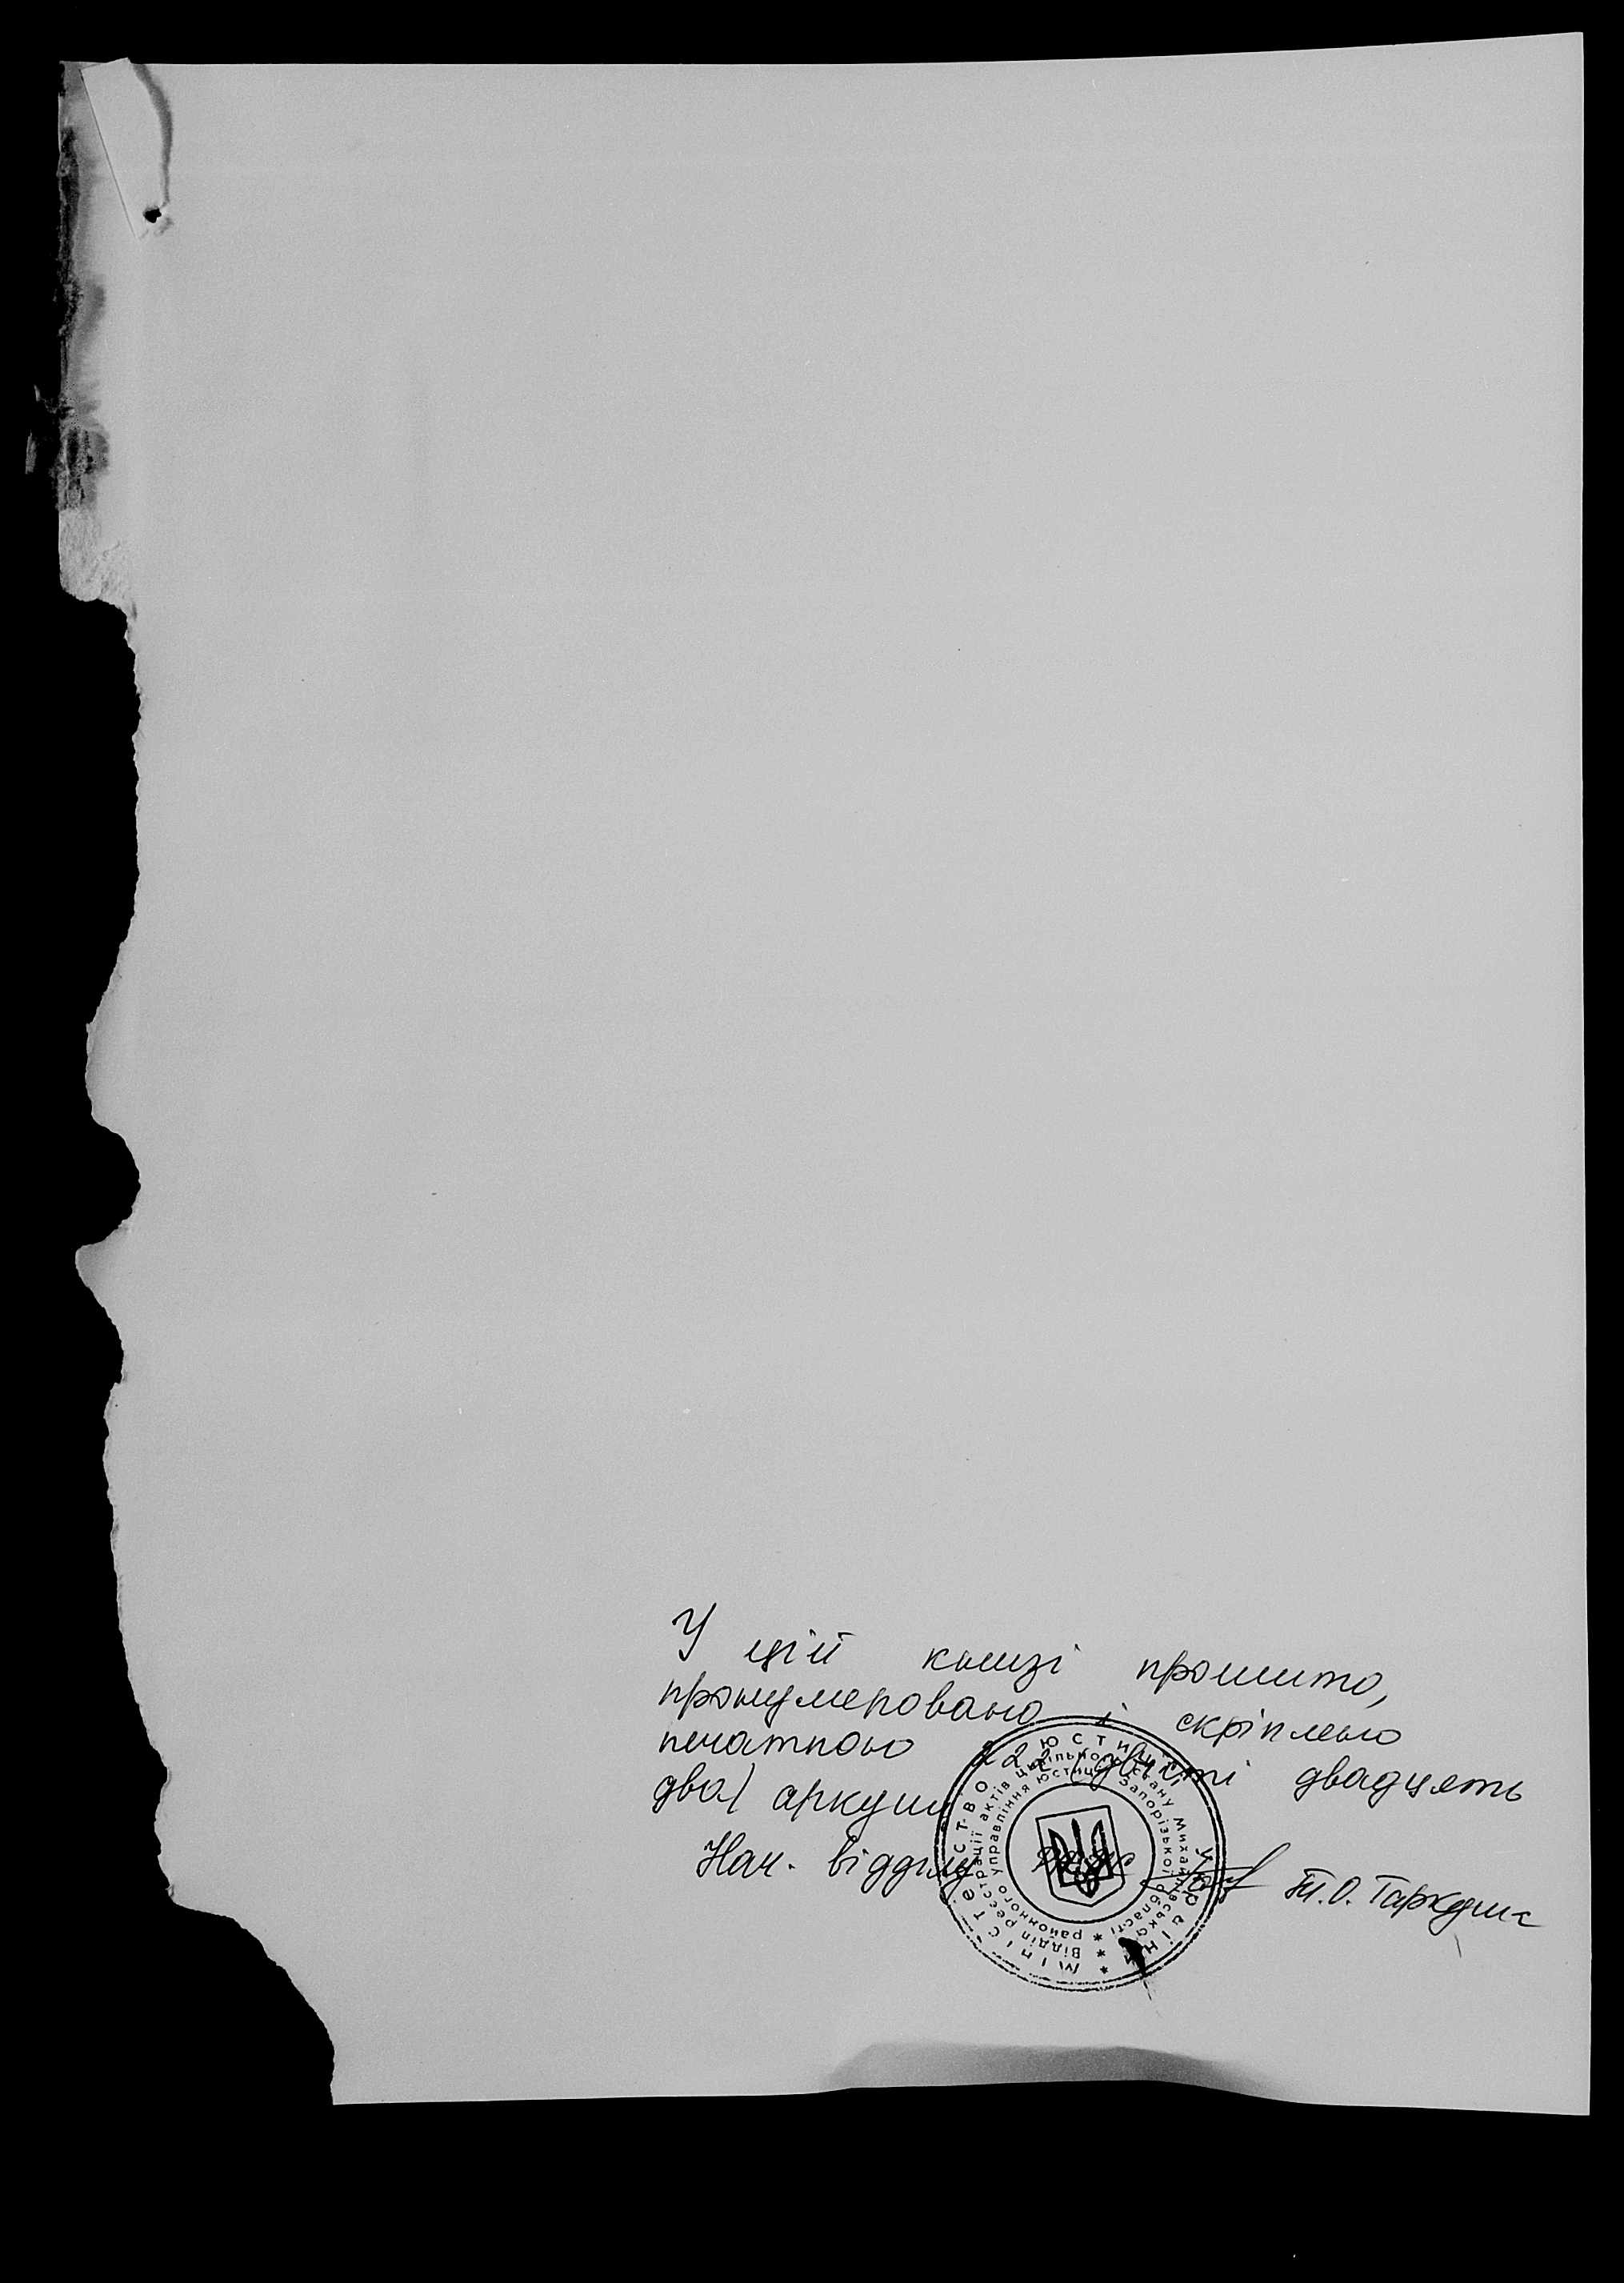 У цій книзі прошито,
пронумеровано і скріплено
печаткою 222 (двісті двадцять
два) аркуші
Нач. відділу Т.О. Гаркуша
Міністерство юстиції України
Відділ реєстрації актів цивільного стану Михайлівського
районного управління юстиції Запорізької області